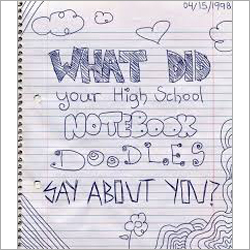 04/15/1998
WHAT DID
your High School
NOTEBOOK
DOODLES
SAY ABOUT YOU?